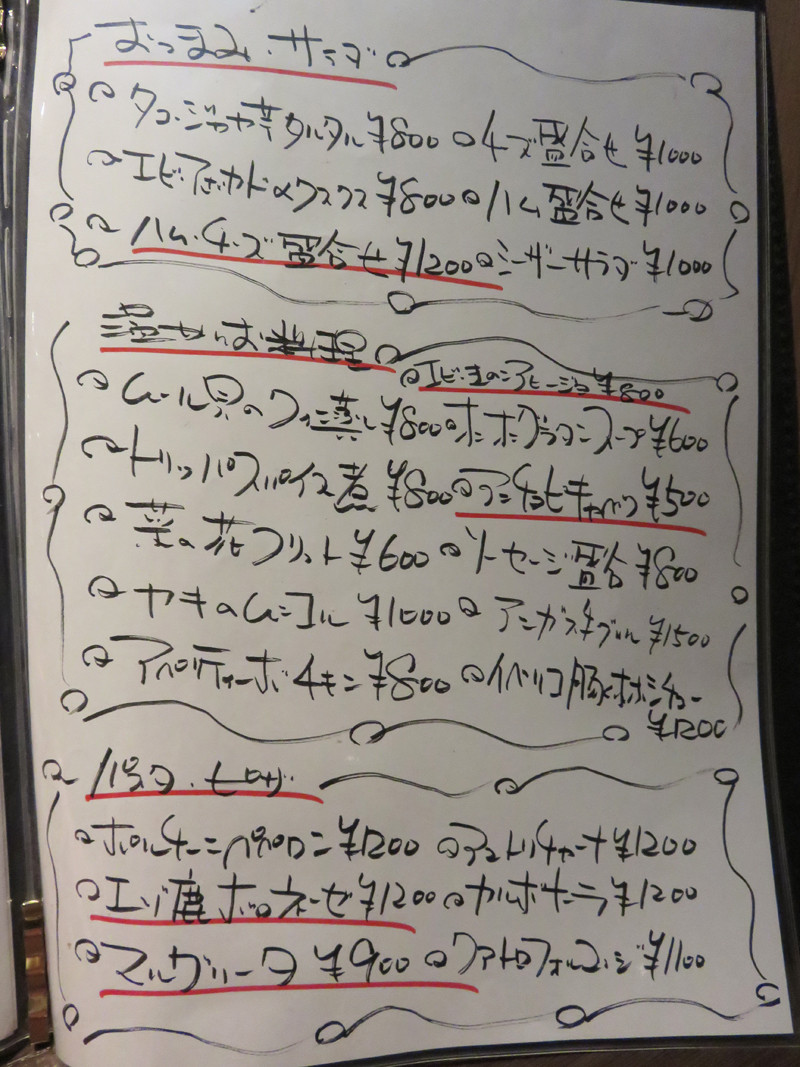 おつまみ・サラダ
タコ・ジャガ芋タルタル ¥800 チーズ盛合せ ¥1000
エビアボカドメクスクス ¥800 ハム盛合せ ¥1000
ハム・チーズ盛合せ ¥1200 シーザーサラダ ¥1000
温かいお料理
エビ・キのこアヒージョ ¥800
ムール貝のワイン蒸し ¥800 オニオングラタンスープ ¥600
トリッパスパイス煮 ¥800 アンチョビキャベツ ¥500
菜の花フリット ¥600 ソーセージ盛合 ¥800
ヤキのムニエル ¥1000 ¥1500
アペリティーボチキン ¥800 イベリコ豚 ¥1200
パスタ・ピザ
ポルチーニペペロンー ¥1200 アマトリチャーナ ¥1200
エゾ鹿ボロネーゼ ¥1200 カルボナーラ ¥1200
マルゲリータ ¥900 クアトロフォルマッジ ¥1100